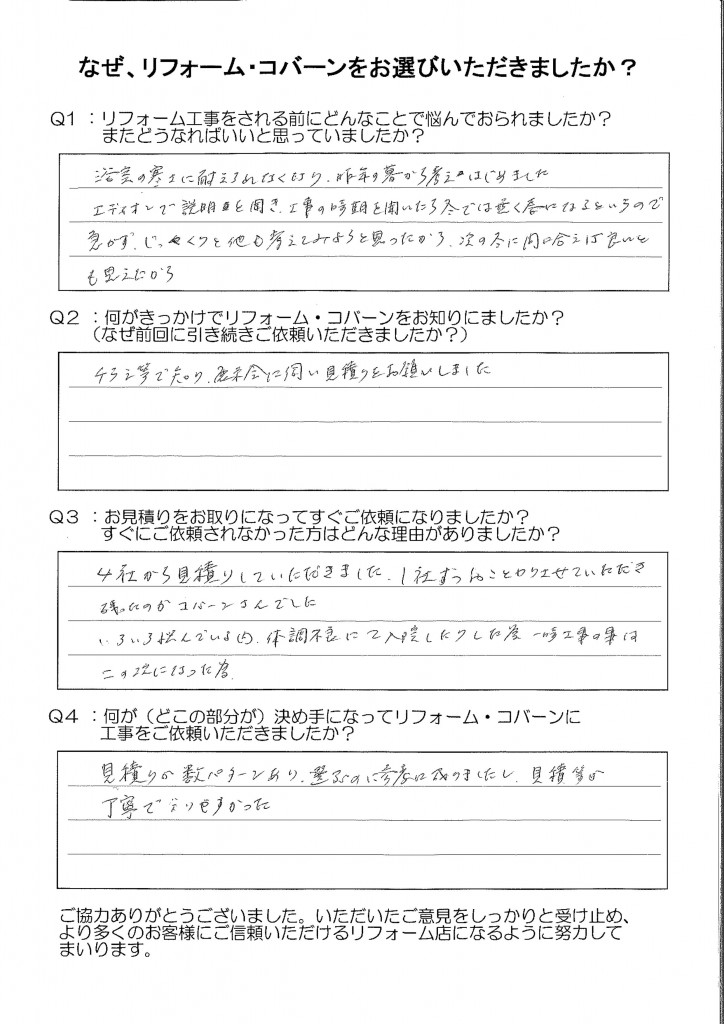 なぜ、リフォーム・コバーンをお選びいただきましたか？
Q1 ：リフォーム工事をされる前にどんなことで悩んでおられましたか？
またどうなればいいと思っていましたか？
浴室の寒さに耐えられなくなり、昨年の暮から考えはじめました
エディオンで説明を聞き、工事の時期を聞いたら冬では遅く春になるというので
急がず、じっくりと他も考えてみようと思ったから、次の冬に間に合えば良いと
も思えたから
Q2 ：何がきっかけでリフォーム・コバーンをお知りにまましたか？
（なぜ前回に引き続きご依頼いただきましたか？）
チラシ等で知り、展示会に伺い見積りをお願いしました
Q3 ：お見積りをお取りになってすぐご依頼になりましたか？
すぐにご依頼されなかった方はどんな理由がありましたか？
4社から見積りしていただきました、1社ずつおことわりさせていただき
残ったのがコバーンさんでした
いろいろ悩んでいる内、体調不良にて入院したりした為 一時工事の事は
二の次になった為
Q4 ：何が（どこの部分が）決め手になってリフォーム・コバーンに
工事をご依頼いただきましたか？
見積りが数パターンあり、選ぶのに参考になりましたし、見積等が
丁寧で
ご協力ありがとうございました。いただいたご意見をしっかりと受け止め、
より多くのお客様にご信頼いただけるリフォーム店になるように努力して
まいります。